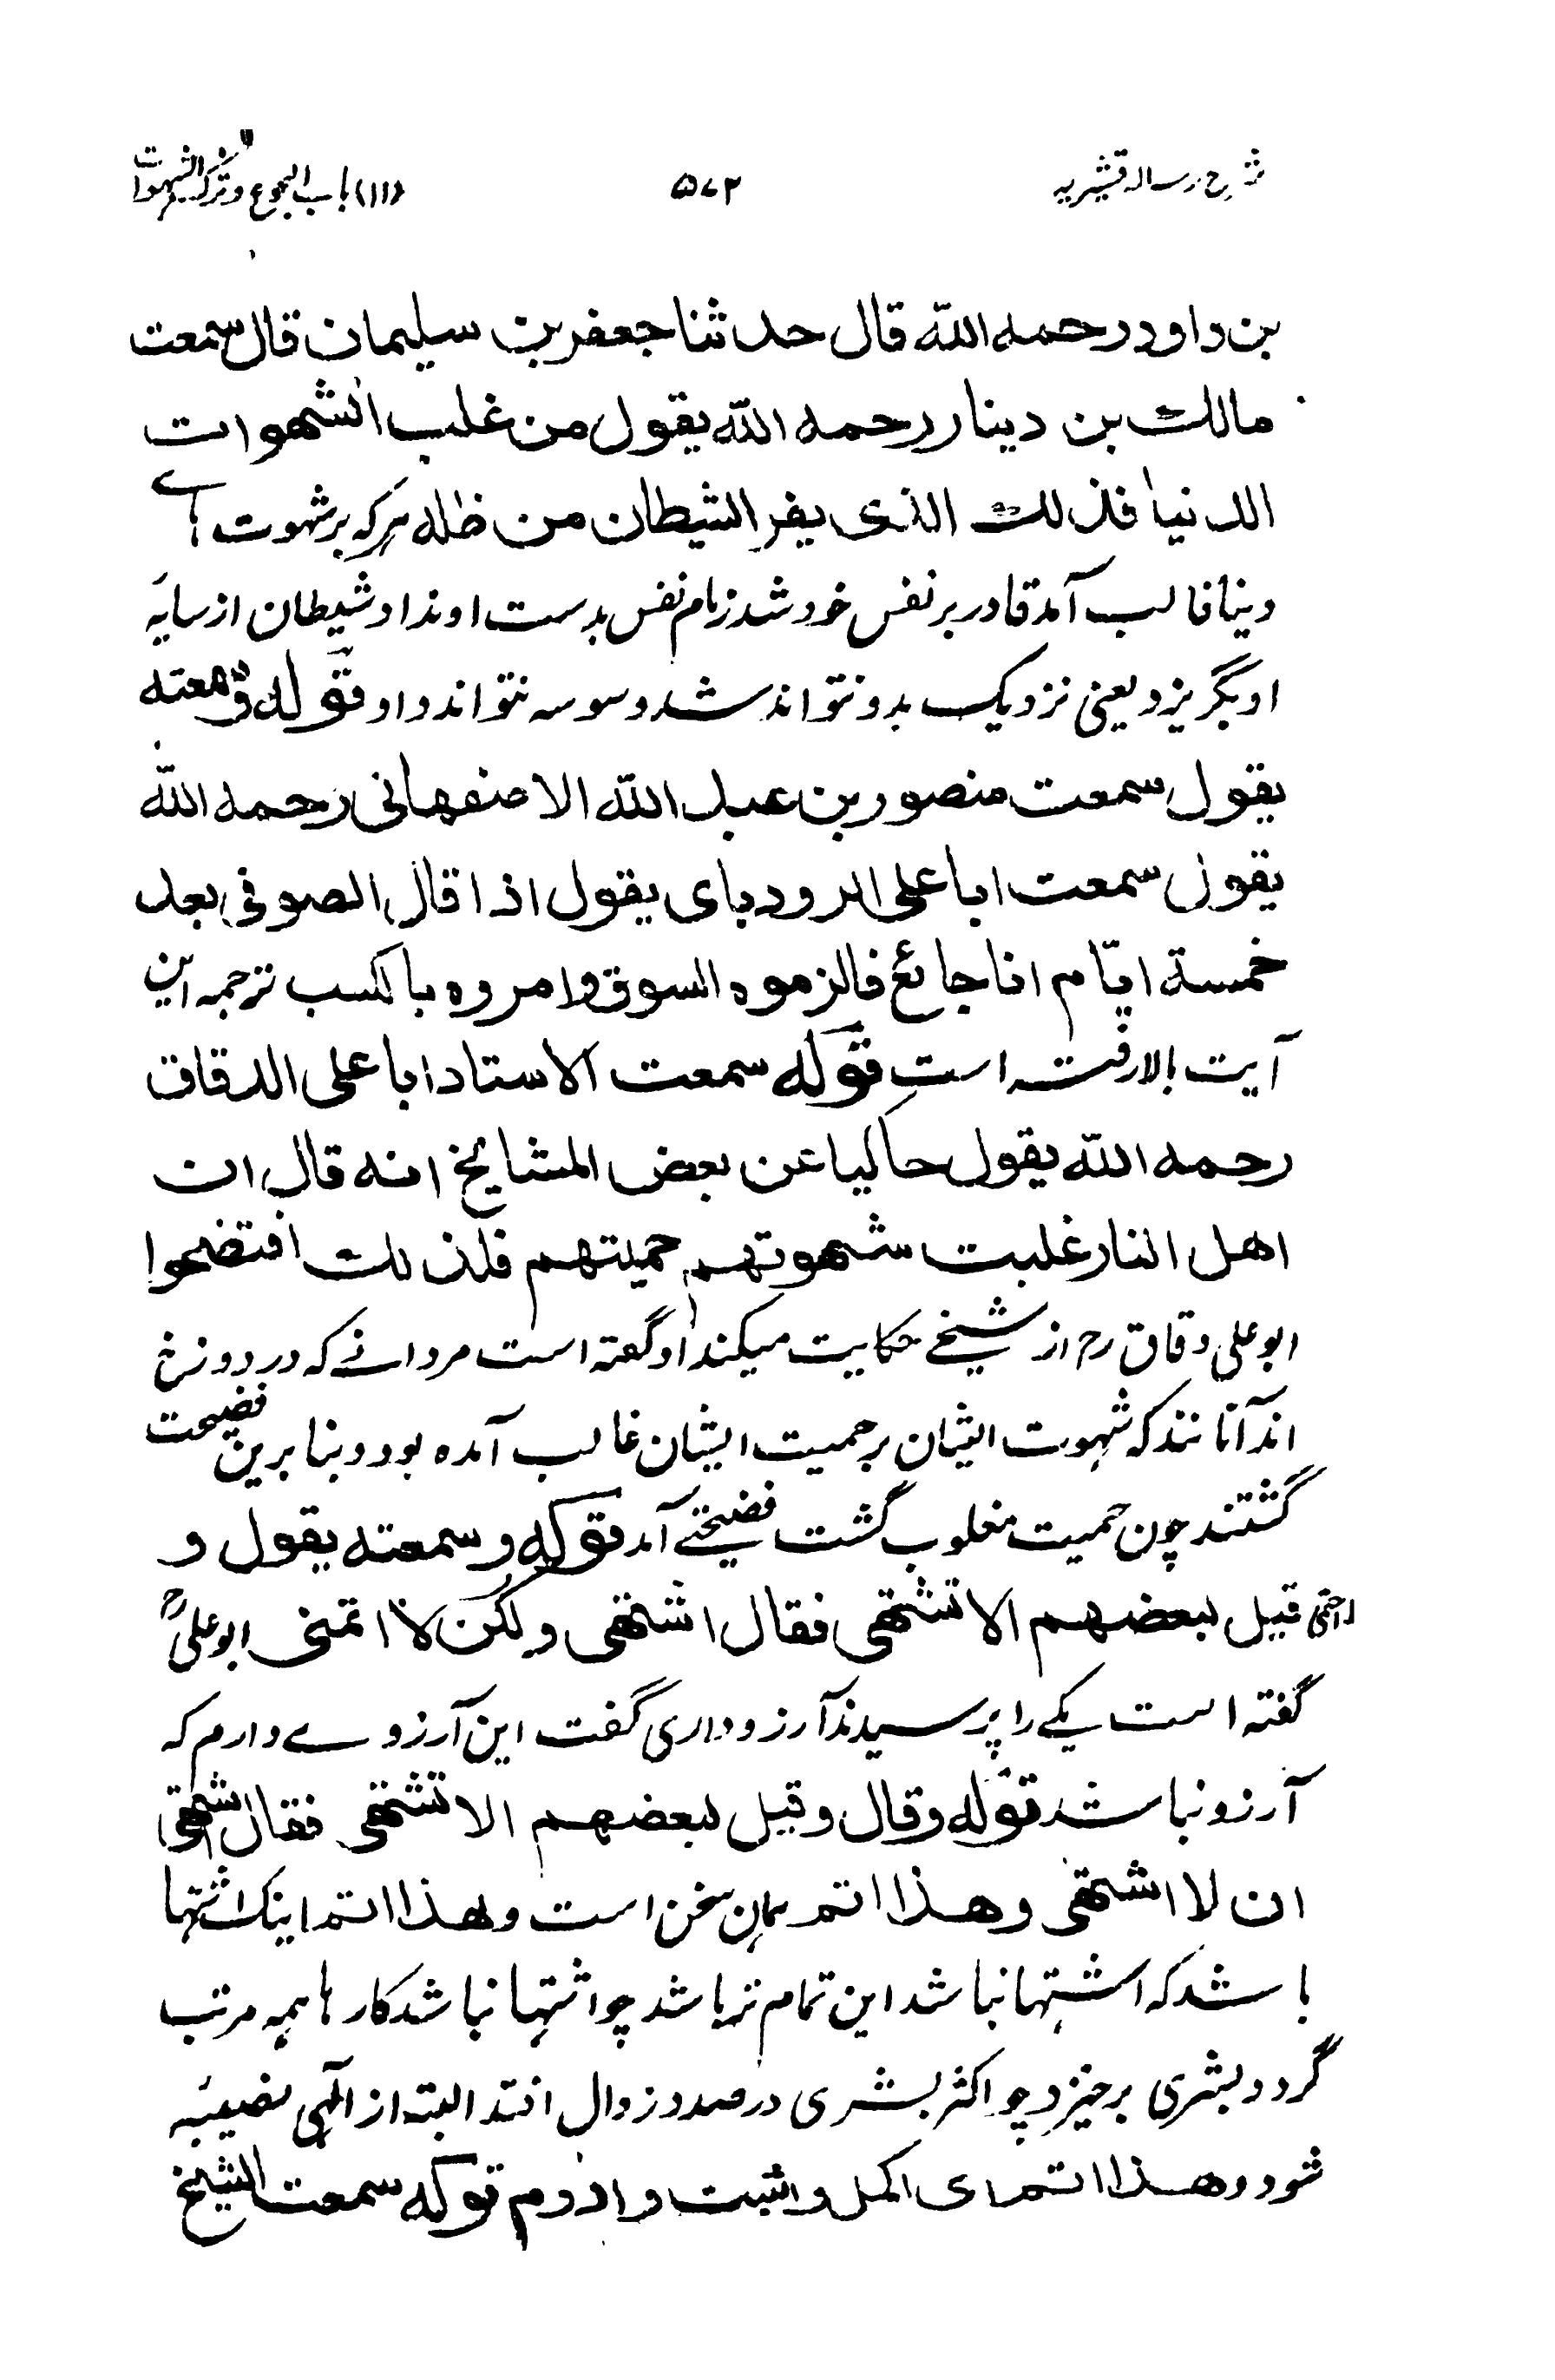 شرح رسالہ قشیریہ ۵۷۲ (۱۱) باب الجوع وترک الشہوات
بن داود رحمه الله قال حدثنا جعفر بن سليمان قال سمعت
مالك بن دينار رحمه الله يقول من غلب الشهوات
الدنيا فذلك الذى يفر الشيطان من ظله ہرکہ بر شہوت ہاے
دنیا غالب آمد قادر بر نفس خود شد زمام نفس بدست او نداد شیطان از سایۂ
او بگریزد یعنی نزدیک بدو نتواند شد و سوسہ نتواند داد قوله وسمعته
يقول سمعت منصور بن عبد الله الاصفهانى رحمه الله
يقول سمعت ابا على الرودباى يقول اذا قال الصوفى بعد
خمسة ايّام انا جائع فالزموه السوق وامروه بالكسب ترجمہ این
آیت بالا رفتہ است قوله سمعت الاستاد ابا على الدقاق
رحمه الله يقول حاكيا عن بعض المشايخ انه قال ان
اهل النار غلبت شهوتهم حميتهم فلذلك افتضحوا
ابو علی دقاق رح از شیخے حکایت میکند او گفتہ است مردانے کہ در دوزخ
اند آنانند کہ شہوت ایشان بر حمیت ایشان غالب آمدہ بود و بنا برین فضیحت
گشتند چون حمیت مغلوب گشت فضیحتے آمد قوله وسمعته يقول و
قيل لبعضهم الا تشتهى فقال اشتهى ولكن لا اتمنى ابو علیؒ
گفتہ است یکے را پرسیدند آرزو داری گفت این آرزوے دارم کہ
آرزو نباشد قوله وقال وقيل لبعضهم الا تشتهى فقال اشتهى
ان لا اشتهى وهذا اتم ہمان سخن است وهذا اتم اینک اشتہا
باشد کہ اشتہا نباشد این تمام تر باشد چو اشتہا نباشد کار ہا ہمہ مرتب
گردد بشری برخیزد چو اکثر بشری در صدد زوال افتد البتہ از الٰہی نصیبہ
شود وهذا اتم ای اکمل واثبت وادوم قوله سمعت الشيخ